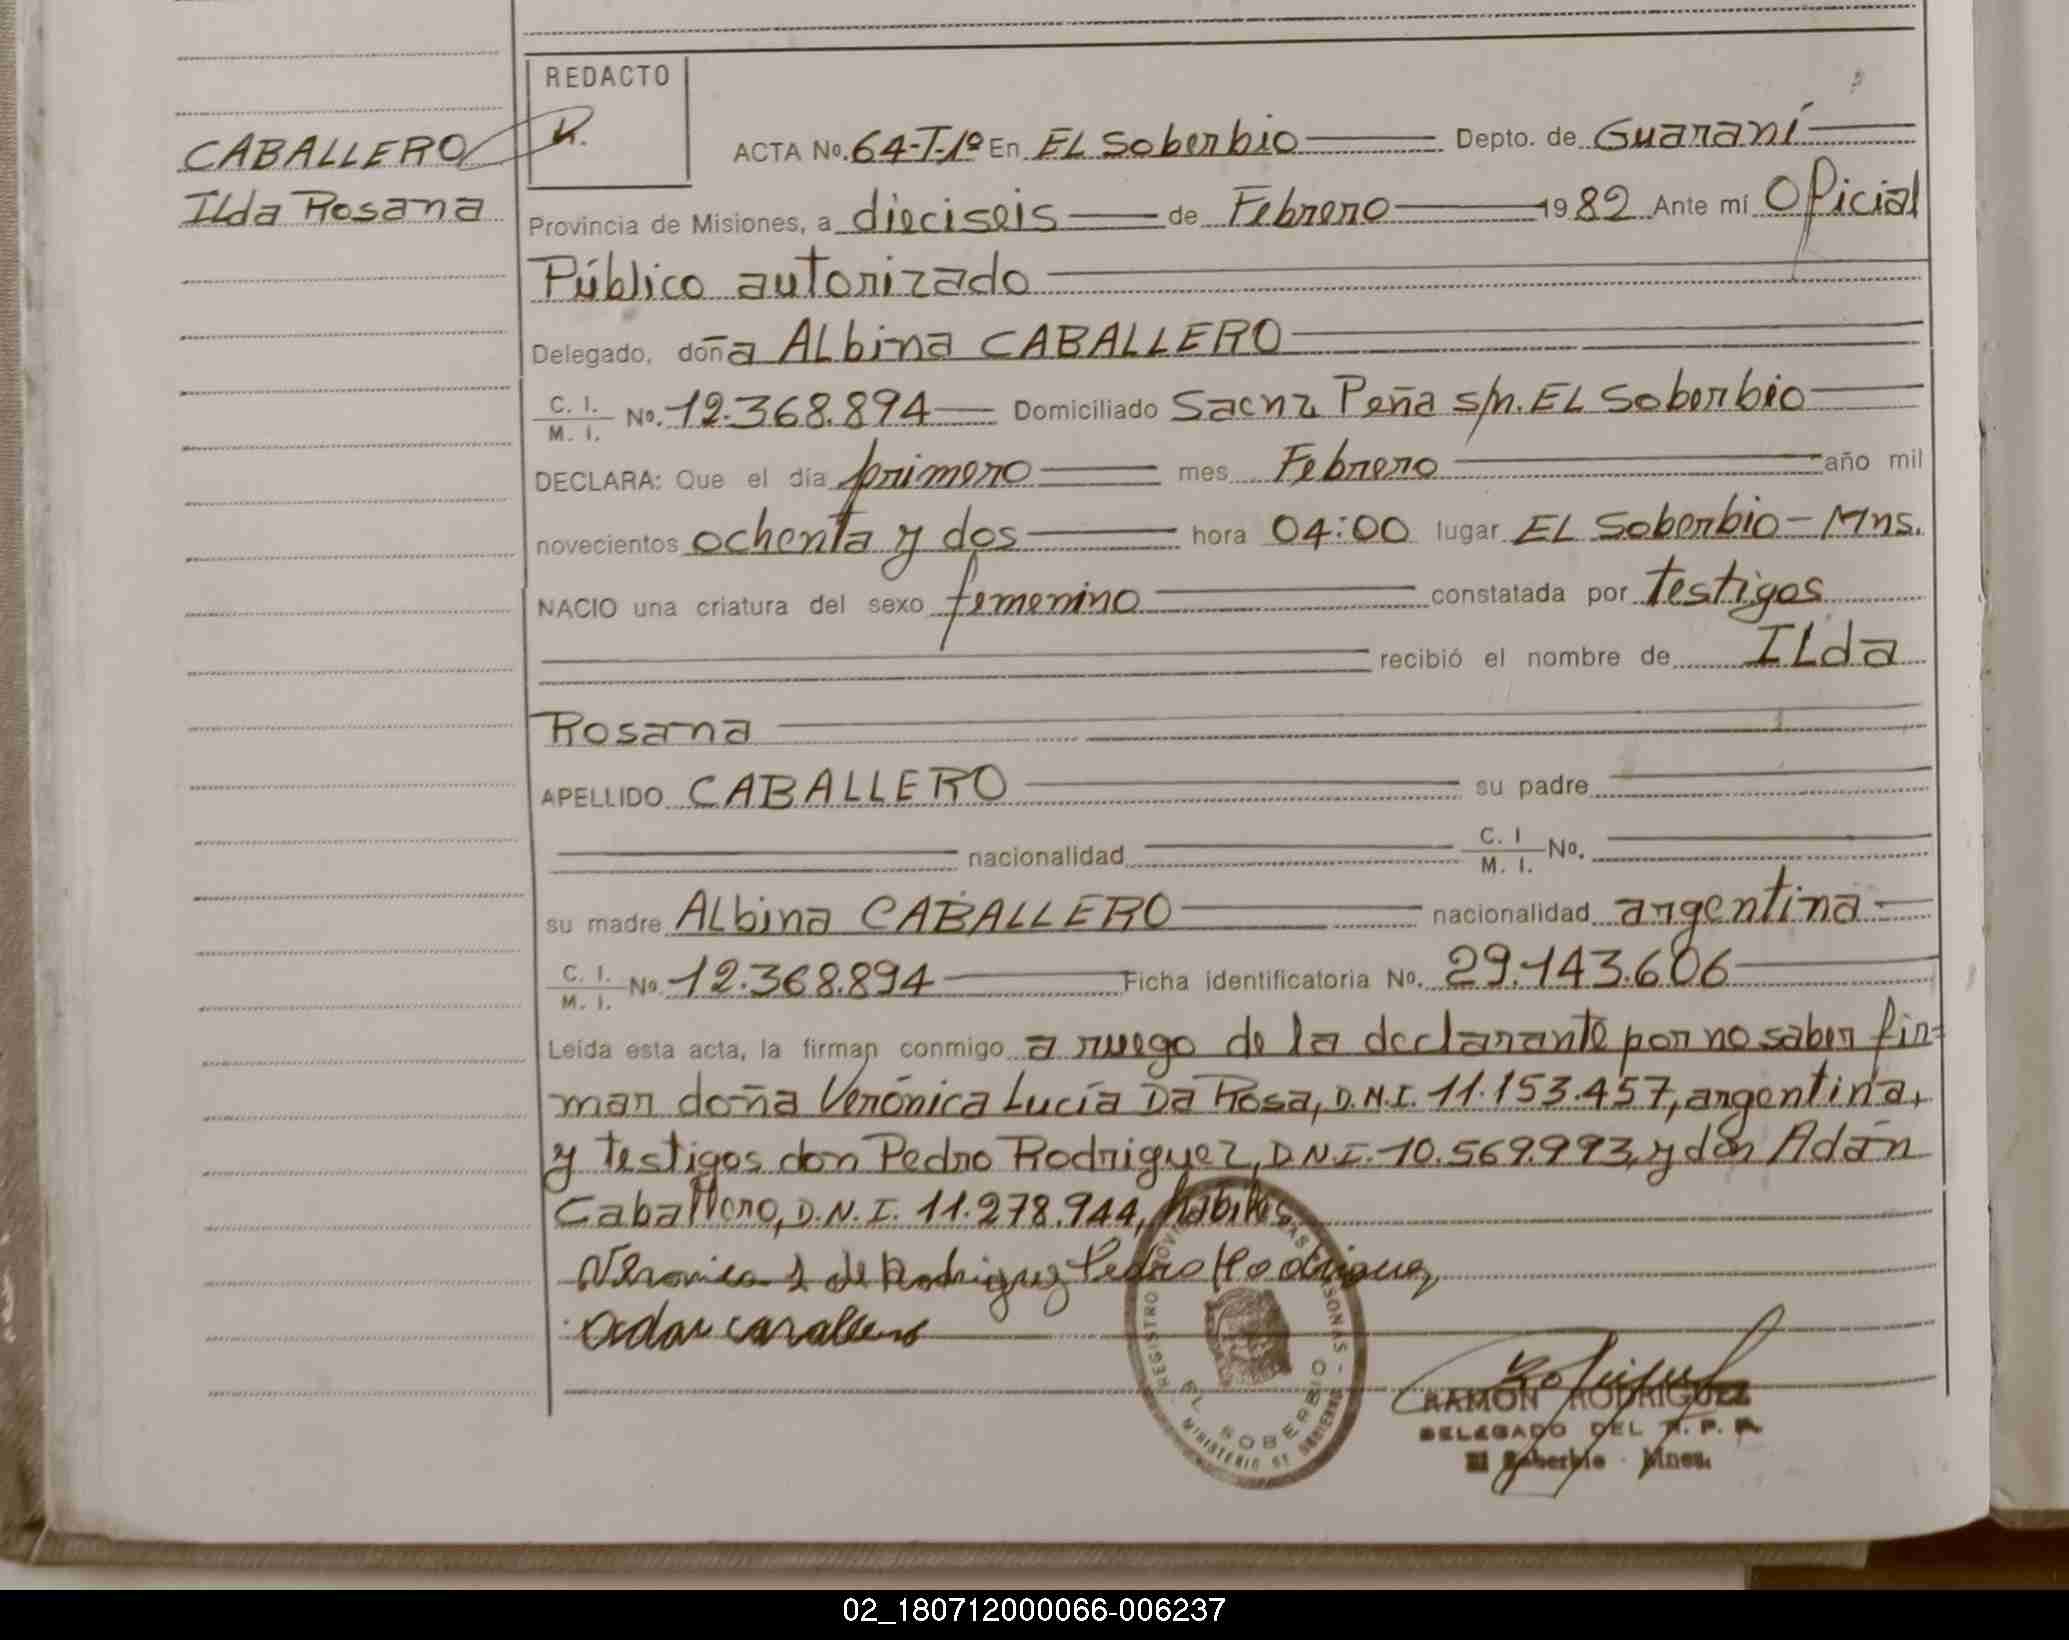 REDACTO
R.
CABALLERO
Ilda Rosana
ACTA No. 64-T-1º En EL Soberbio Depto. de Guaraní
Provincia de Misiones, a dieciseis de Febrero 1982 Ante mí Oficial
Público autorizado
Delegado, doña ALbina CABALLERO
C. I. / M. I. No. 12.368.894 Domiciliado Saenz Peña s/n. EL Soberbio
DECLARA: Que el día primero mes Febrero año mil
novecientos ochenta y dos hora 04:00 lugar EL Soberbio - Mns.
NACIO una criatura del sexo femenino constatada por testigos
recibió el nombre de ILda
Rosana
APELLIDO CABALLERO su padre
nacionalidad C. I / M. I. No.
su madre ALbina CABALLERO nacionalidad argentina
C. I. / M. I. No. 12.368.894 Ficha identificatoria No. 29.143.606
Leída esta acta, la firman conmigo a ruego de la declarante por no saber fir=
mar doña Verónica Lucía Da Rosa, D.N.I. 11.153.457, argentina,
y testigos don Pedro Rodriguez, D.N.I. 10.569.993, y don Adán
Caballero, D.N.I. 11.278.944, habiles
Veronica L de Rodriguez Pedro Rodriguez
adan cavallero
EL SOBERBIO
RAMON RODRIGUEZ
DELEGADO DEL R. P. P.
El Soberbio - Mnes.
02_180712000066-006237